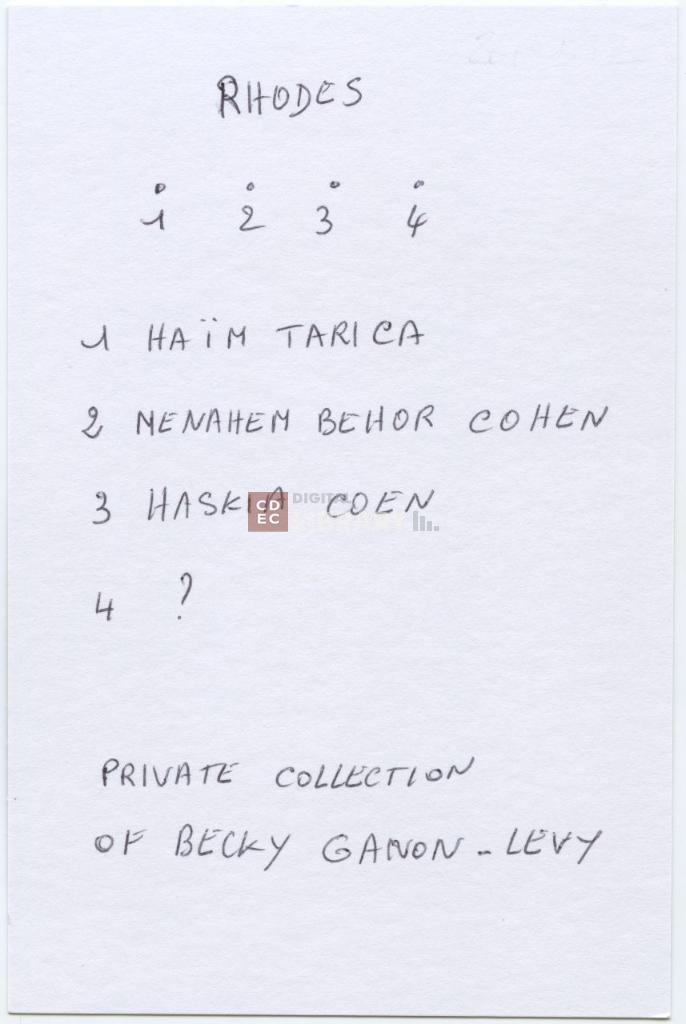 RHODES
1 2 3 4
1 HAÏM TARICA
2 MENAHEM BEHOR COHEN
3 HASKIA COEN
4 ?
CDEC DIGITAL LIBRARY
PRIVATE COLLECTION
OF BECKY GANON - LEVY